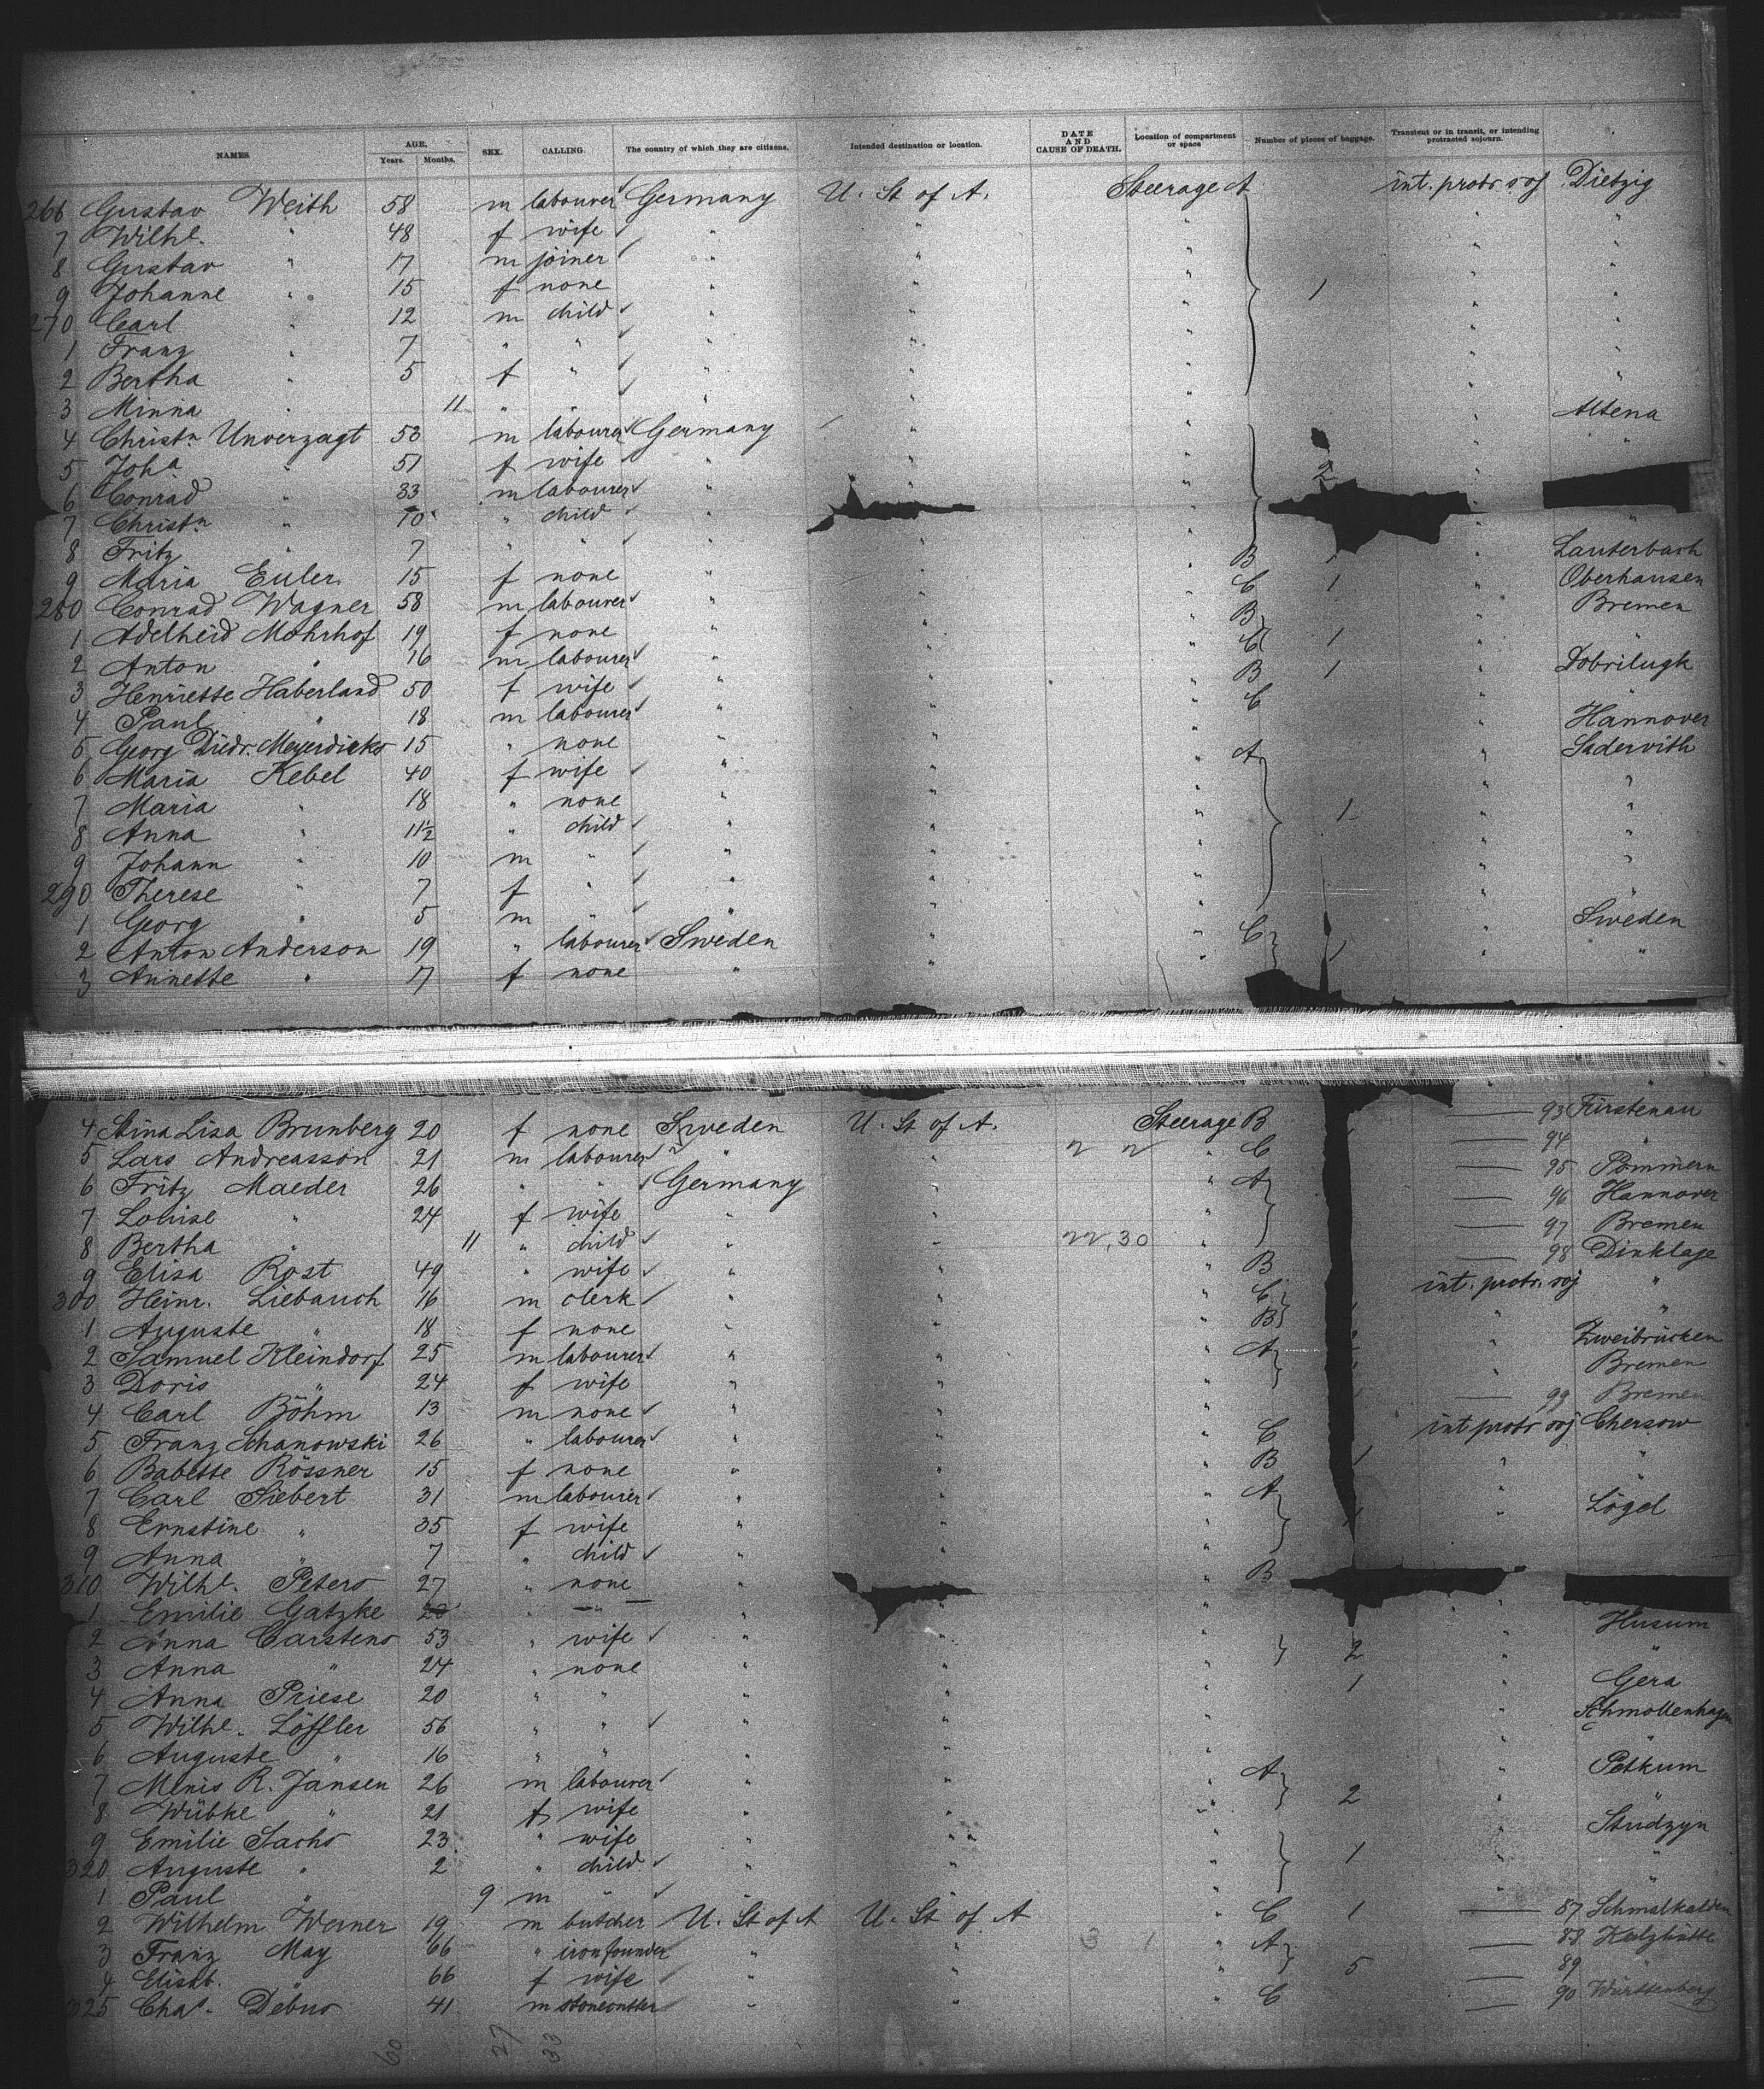 NAMES AGE. Years. Months. SEX. CALLING. The country of which they are citizens. Intended destination or location. DATE AND CAUSE OF DEATH. Location of compartment or space Number of pieces of baggage. Transient or in transit, or intending protracted sojourn.
266 Gustav Weith 58 m labourer Germany U. St of A. Steerage A int. protr soj Dietzig
7 Wilhe. " 48 f wife " " " " "
8 Gustav " 17 m joiner " " " " "
9 Johanne " 15 f none " " " 1 " "
270 Carl " 12 m child " " " " "
1 Franz " 7 " " " " " " "
2 Bertha " 5 f " " " " " "
3 Minna " 11 " " " " " "
4 Christn Unverzagt 53 m labourer Germany " " Altena
5 Joha " 51 f wife " " " " "
6 Conrad " 33 m labourer " " " 2
7 Christn " 10 " child " "
8 Fritz " 7 " " " " " "
9 Maria Euler 15 f none " " " B 1 " Lauterbach
280 Conrad Wagner 58 m labourer " " " C 1 " Oberhausen
1 Adelheid Mohrhof 19 f none " " " B " Bremen
2 Anton " 16 m labourer " " " C 1 " "
3 Henriette Haberland 50 f wife " " " B 1 " Dobrilugk
4 Paul " 18 m labourer " " " C " "
5 Georg Diedr. Meyerdierks 15 " none " " " " Hannover
6 Maria Kebel 40 f wife " " " A " Sadervith
7 Maria " 18 " none " " " " "
8 Anna " 11½ " child " " " 1 " "
9 Johann " 10 m " " " " " "
290 Therese " 7 f " " " " " "
1 Georg " 5 m " " " " " "
2 Anton Anderson 19 " labourer Sweden " " C 1 " Sweden
3 Annette " 17 f none " " " " "
4 Stina Lisa Brunberg 20 f none Sweden U. St of A. Steerage B — 93 Fürstenau
5 Lars Andreasson 21 m labourer " " " C — 94 "
6 Fritz Maeder 26 " " Germany " " A — 95 Pommern
7 Louise " 24 f wife " " " — 96 Hannover
8 Bertha " 11 " child " " 22,30 " — 97 Bremen
9 Elisa Rost 49 " wife " " B — 98 Dinklage
300 Heinr. Liebauch 16 m clerk " " " C int. protr. soj "
1 Auguste " 18 f none " " " B " "
2 Samuel Kleindorf 25 m labourer " " " A " Zweibrücken
3 Doris " 24 f wife " " " " Bremen
4 Carl Böhm 13 m none " " " — 99 Bremen
5 Franz Schanowski 26 " labourer " " " C int protr soj Chersow
6 Babette Rössner 15 f none " " " B 1 " "
7 Carl Siebert 31 m labourer " " " A " "
8 Ernstine " 35 f wife " " " " Lögel
9 Anna " 7 " child " " "
310 Wilhe. Peters 27 " none " " B
1 Emilie Gatzke 20 " — " — " " "
2 Anna Carstens 53 " wife " " " 2 " Husum
3 Anna " 24 " none " " " " "
4 Anna Priese 20 " " " " " 1 " Gera
5 Wilhe. Löffler 56 " " " " " " Schmollenhagen
6 Auguste " 16 " " " " " " "
7 Menis R. Jansen 26 m labourer " " " A 2 " Petkum
8 Wübke " 21 f wife " " " " "
9 Emilie Sachs 23 " wife " " " 1 " Studzyn
320 Auguste " 2 " child " " " " "
1 Paul " 9 m " " " " " "
2 Wilhelm Werner 19 m butcher U. St of A U. St of A " C 1 — 87 Schmalkalden
3 Franz May 66 " ironfounder " " " A 5 — 88 Katzhütte
4 Elisab. " 66 f wife " " " — 89 "
325 Chas. Debus 41 m stonecutter " " " C — 90 Württenberg
60 27 33